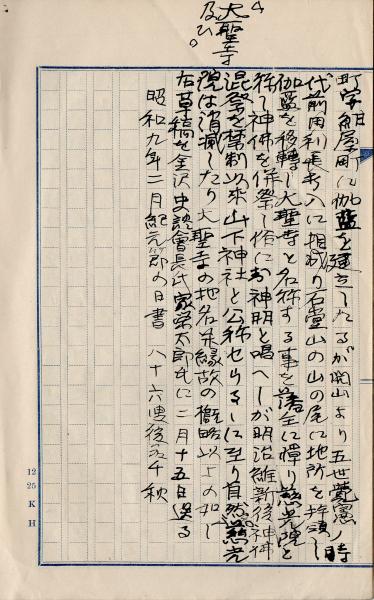 大聖寺
及ひ
町字紺屋町に伽藍を建立したるが開山より五世覚憲ノ時
代前田利長考入に相成り石堂山の山の尾に地所を拝領し
伽藍を移転し大聖寺と名称する事を藩主に憚り慈光院と
称し神佛を併祭し俗にお神明と唱へしが明治維新後神佛
混合を禁制以来山下神社と公称せらるゝに至り自然慈光
院は消滅したり大聖寺の地名并縁故の概略以上の如し
右草稿を金沢史談會長氏家栄太郎氏に二月十五日送る
昭和九年二月紀元節の日書 八十六叟後永千秋
12
25
K
H